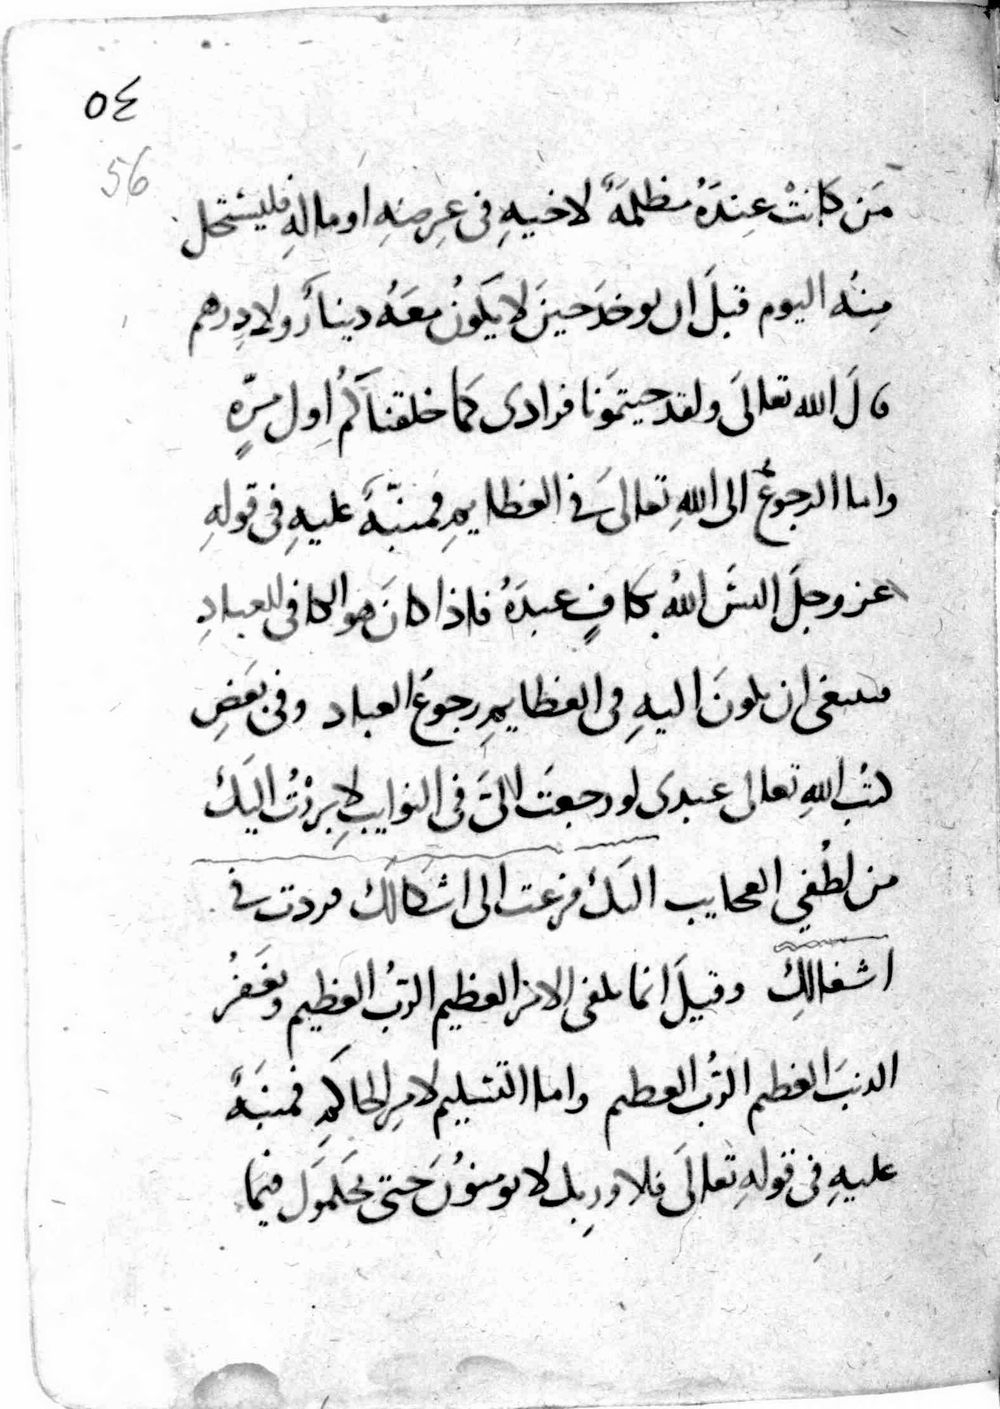 ٥٤
56
مَن كَانتْ عِندَهُ مظلمَةٌ لاخيهِ فى عِرضِهِ او مالهِ فليستحل
مِنهُ اليوم قبلَ ان يوخذَ حينَ لا يَكونُ معَهُ دينارٌ ولا دِرهم
قالَ الله تعالىَ ولقد جيتمَونا فرادى كمَا خلقناكمُ اول مرّةٍ
واما الرجوعُ الى اللهِ تعالىَ فى العظايمِ فمنبّهٌ عليهِ فى قولهِ
عز وجلَ اليسَ اللهُ بكافٍ عبدَهُ فاذا كانَ هو الكافى للعبادِ
فينبغى ان يكونَ اليهِ فى العظايمِ رجوعُ العباد وفى بعَضِ
كتُب اللهِ تعالى عبدى لو رجعتَ الىَّ فى النوايبِ لابرزْتُ اليَكَ
من لطُفي العجايب لكنك فزعت الى اشكالك فردت فى
اشغالكِ وقيلَ انما يلقى الامر العظيم الربُ العظيم ويغفرُ
الذنبَ العظيم الربُ العظيم واما التسّليم لامرِ الحاكمِ فمنبَهٌ
عليهِ فى قولهِ تعالىَ فلا وربك لا يومنونُ حَتى يحَكموَك فيمَا